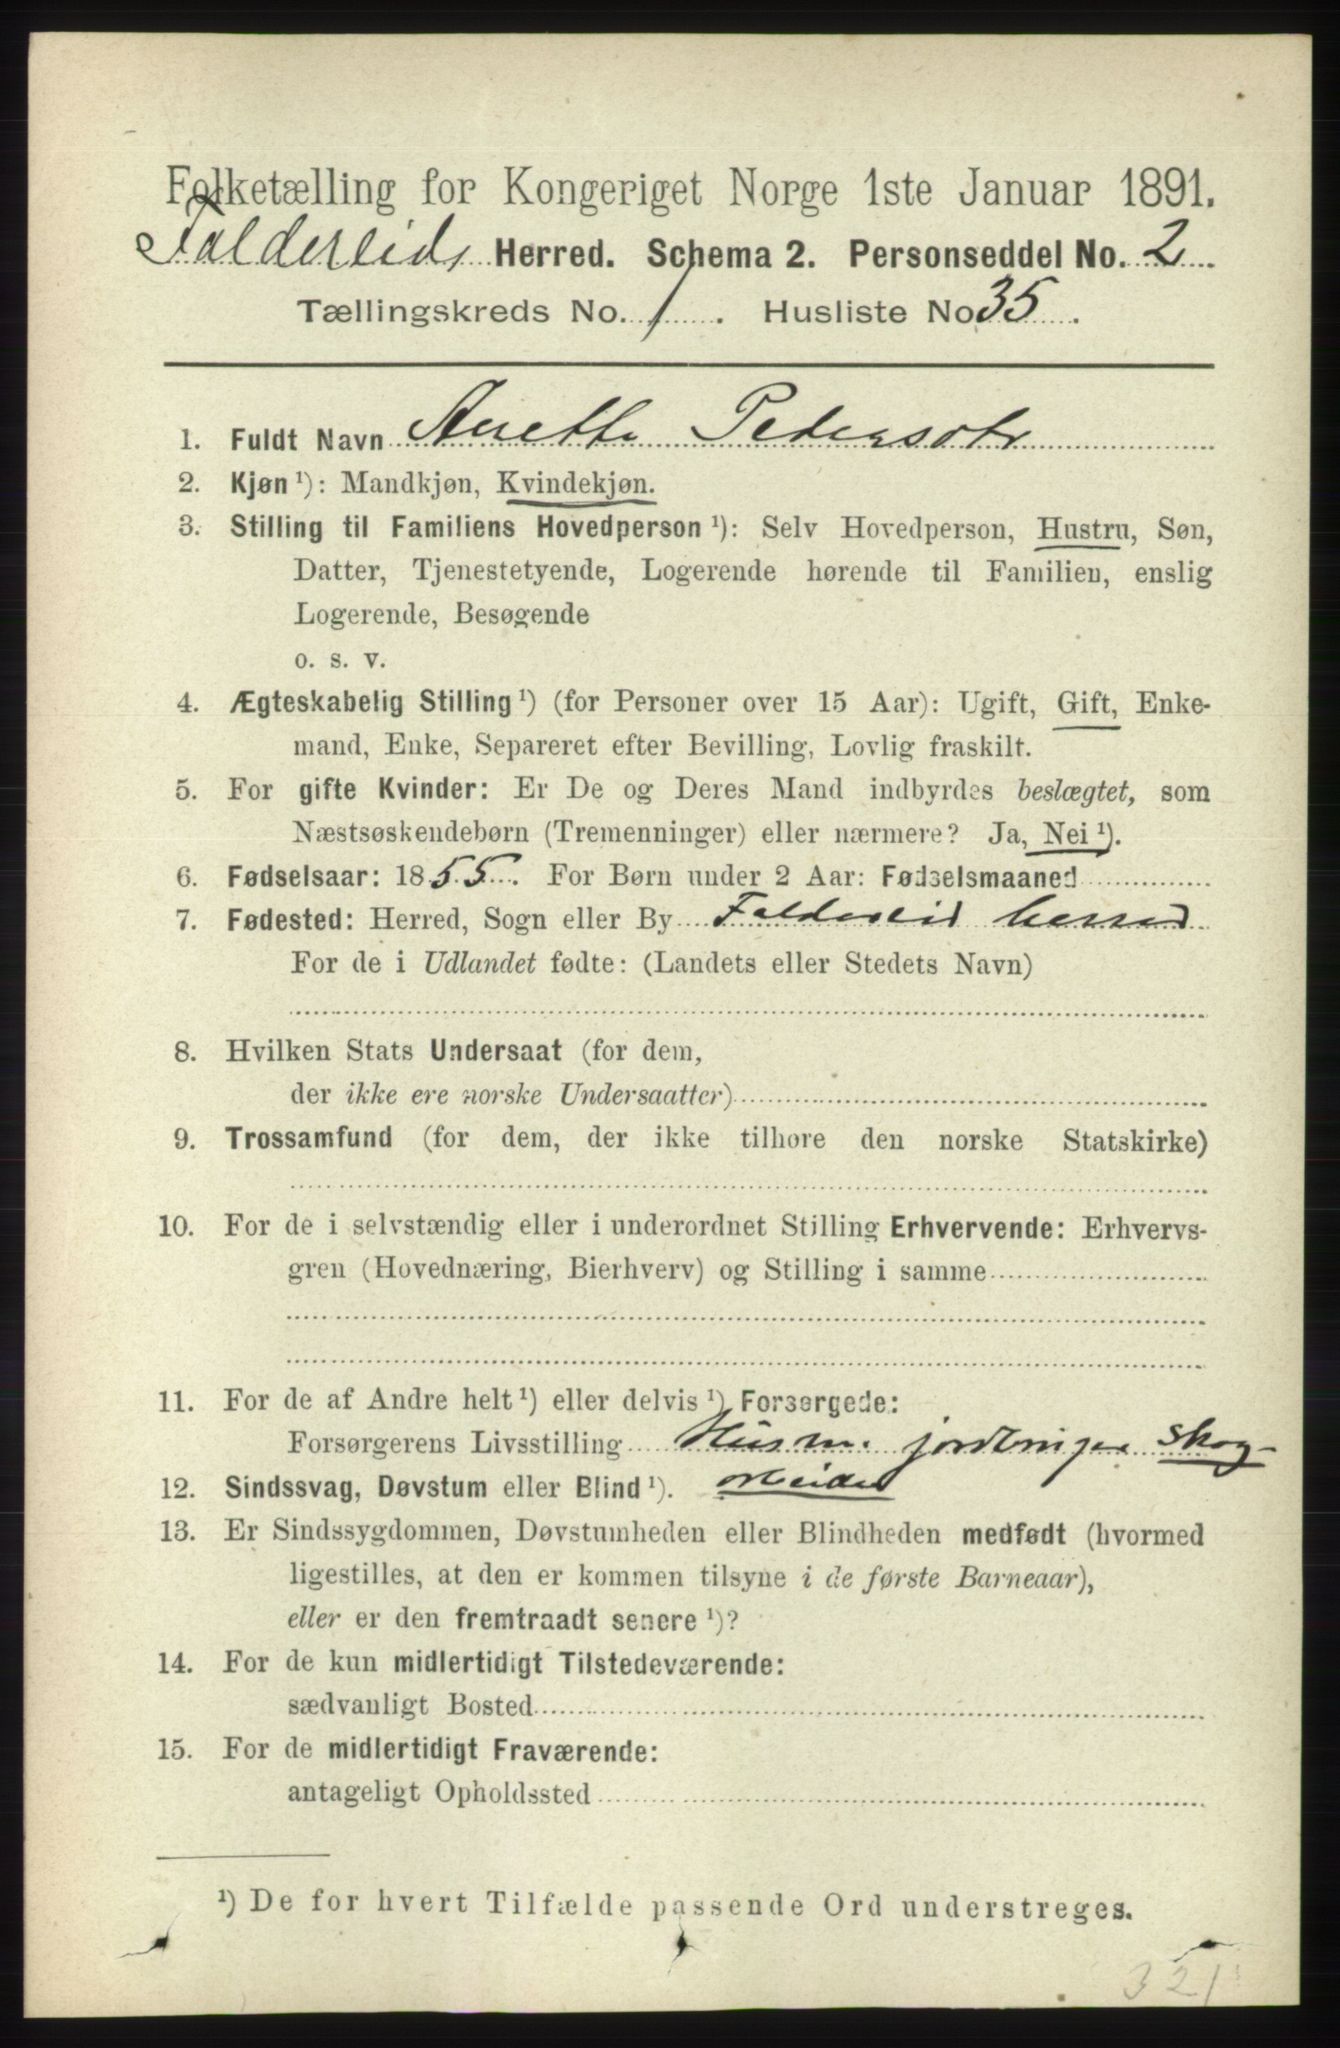 Folketælling for Kongeriget Norge 1ste Januar 1891.
Foldereids Herred. Schema 2. Personseddel No. 2
Tællingskreds No. 1. Husliste No 35.
1. Fuldt Navn Anette Pedersdtr
2. Kjøn ¹): Mandkjøn, Kvindekjøn.
3. Stilling til Familiens Hovedperson ¹): Selv Hovedperson, Hustru, Søn,
Datter, Tjenestetyende, Logerende hørende til Familien, enslig
Logerende, Besøgende
o. s. v.
4. Ægteskabelig Stilling ¹) (for Personer over 15 Aar): Ugift, Gift, Enke-
mand, Enke, Separeret efter Bevilling, Lovlig fraskilt.
5. For gifte Kvinder: Er De og Deres Mand indbyrdes beslægtet, som
Næstsøskendebørn (Tremenninger) eller nærmere? Ja, Nei ¹).
6. Fødselsaar: 1855. For Børn under 2 Aar: Fødselsmaaned
7. Fødested: Herred, Sogn eller By Foldereid herred
For de i Udlandet fødte: (Landets eller Stedets Navn)
8. Hvilken Stats Undersaat (for dem,
der ikke ere norske Undersaatter)
9. Trossamfund (for dem, der ikke tilhøre den norske Statskirke)
10. For de i selvstændig eller i underordnet Stilling Erhvervende: Erhvervs-
gren (Hovednæring, Bierhverv) og Stilling i samme
11. For de af Andre helt ¹) eller delvis ¹) Forsørgede:
Forsørgerens Livsstilling Husm. jordbruger skog-
12. Sindssvag, Døvstum eller Blind ¹). arbeider
13. Er Sindssygdommen, Døvstumheden eller Blindheden medfødt (hvormed
ligestilles, at den er kommen tilsyne i de første Barneaar),
eller er den fremtraadt senere ¹)?
14. For de kun midlertidigt Tilstedeværende:
sædvanligt Bosted
15. For de midlertidigt Fraværende:
antageligt Opholdssted
¹) De for hvert Tilfælde passende Ord understreges.
321